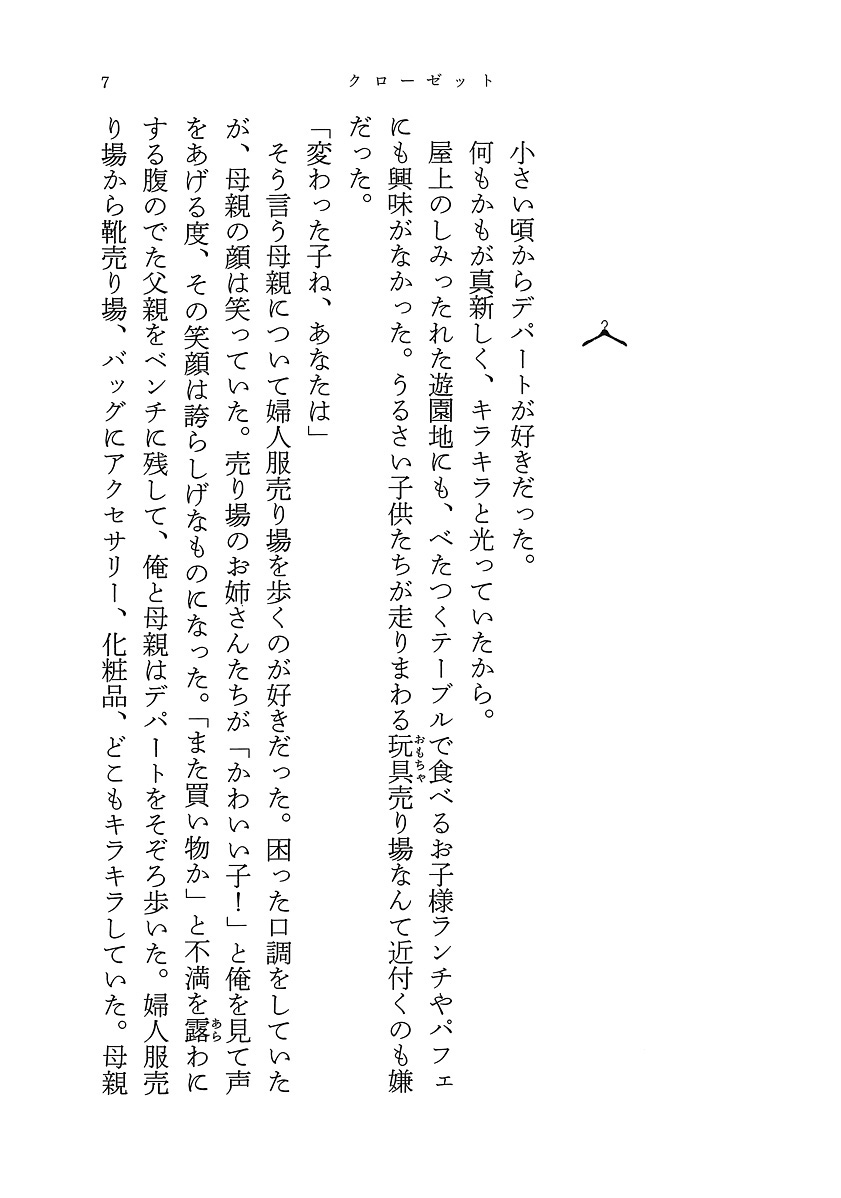 7
クローゼット
小さい頃からデパートが好きだった。
何もかもが真新しく、キラキラと光っていたから。
屋上のしみったれた遊園地にも、べたつくテーブルで食べるお子様ランチやパフェ
にも興味がなかった。うるさい子供たちが走りまわる玩具売り場なんて近付くのも嫌
おもちゃ
だった。
「変わった子ね、あなたは」
そう言う母親について婦人服売り場を歩くのが好きだった。困った口調をしていた
が、母親の顔は笑っていた。売り場のお姉さんたちが「かわいい子！」と俺を見て声
をあげる度、その笑顔は誇らしげなものになった。「また買い物か」と不満を露わに
あら
する腹のでた父親をベンチに残して、俺と母親はデパートをそぞろ歩いた。婦人服売
り場から靴売り場、バッグにアクセサリー、化粧品、どこもキラキラしていた。母親